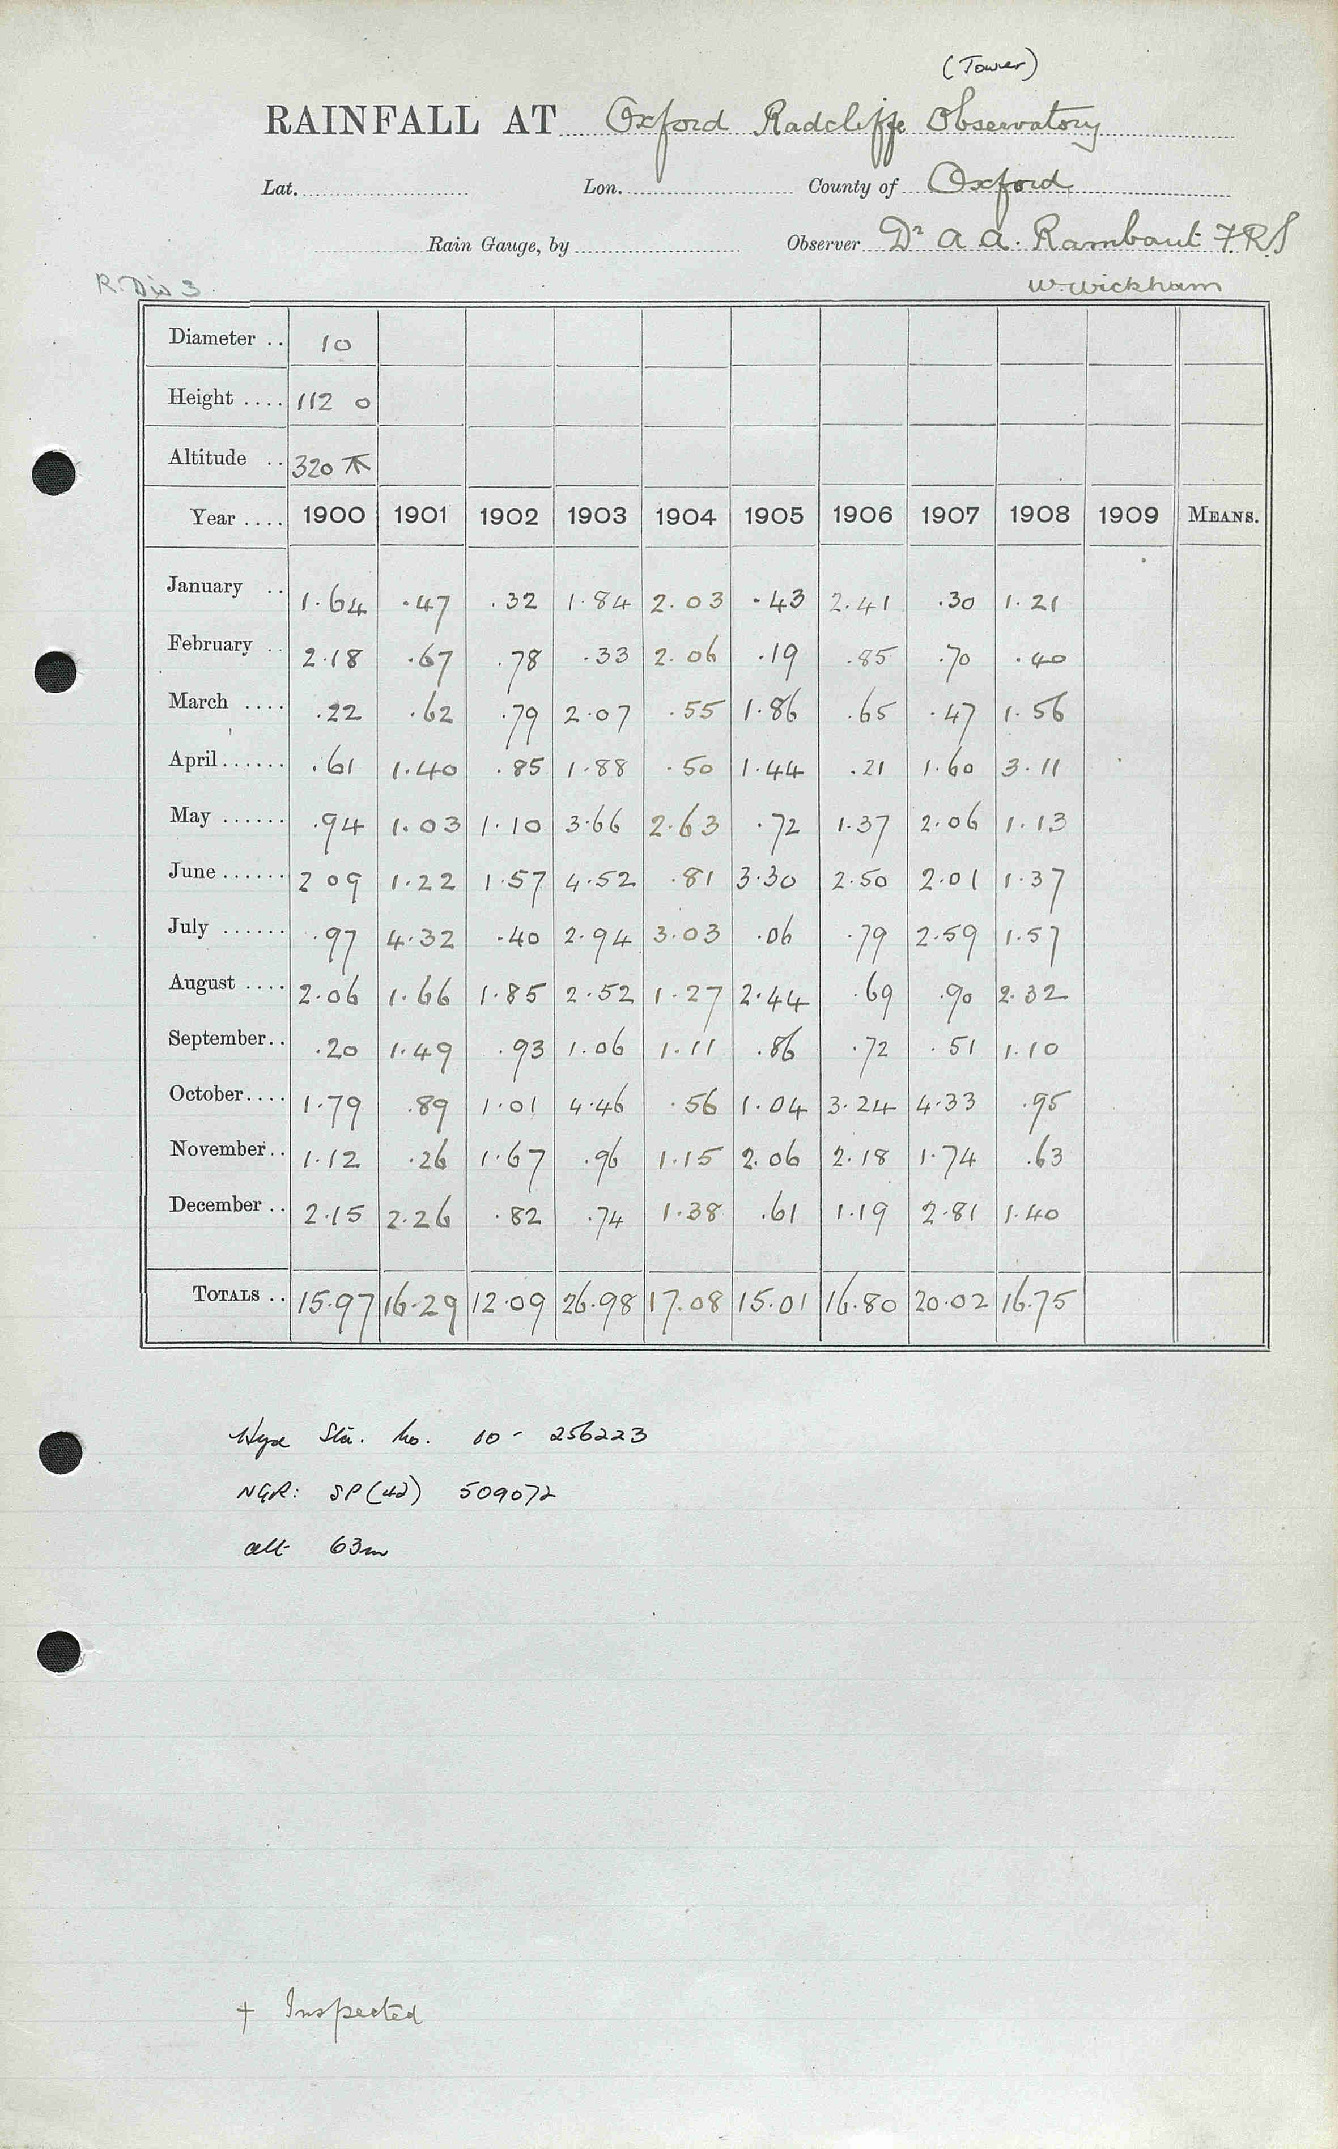 (Tower)
RAINFALL AT Oxford Radcliffe Observatory
Lat. Lon. County of Oxford
Rain Gauge, by Observer Dr A A. Rambaut FRS
R. Dis 3 W. Wickham
Diameter .. 10
Height .... 112 0
Altitude .. 320
Year .... 1900 1901 1902 1903 1904 1905 1906 1907 1908 1909 MEANS.
January .. 1.64 .47 .32 1.84 2.03 .43 2.41 .30 1.21
February .. 2.18 .67 .78 .33 2.06 .19 .85 .70 .40
March .... .22 .62 .79 2.07 .55 1.86 .65 .47 1.56
April...... .61 1.40 .85 1.88 .50 1.44 .21 1.60 3.11
May ...... .94 1.03 1.10 3.66 2.63 .72 1.37 2.06 1.13
June ...... 2 09 1.22 1.57 4.52 .81 3.30 2.50 2.01 1.37
July ...... .97 4.32 .40 2.94 3.03 .06 .79 2.59 1.57
August .... 2.06 1.66 1.85 2.52 1.27 2.44 .69 .90 2.32
September.. .20 1.49 .93 1.06 1.11 .86 .72 .51 1.10
October.... 1.79 .89 1.01 4.46 .56 1.04 3.24 4.33 .95
November.. 1.12 .26 1.67 .96 1.15 2.06 2.18 1.74 .63
December .. 2.15 2.26 .82 .74 1.38 .61 1.19 2.81 1.40
TOTALS .. 15.97 16.29 12.09 26.98 17.08 15.01 16.80 20.02 16.75
Sta. No. 10 - 256223
NGR: SP (42) 509072
alt 63m
† Inspected